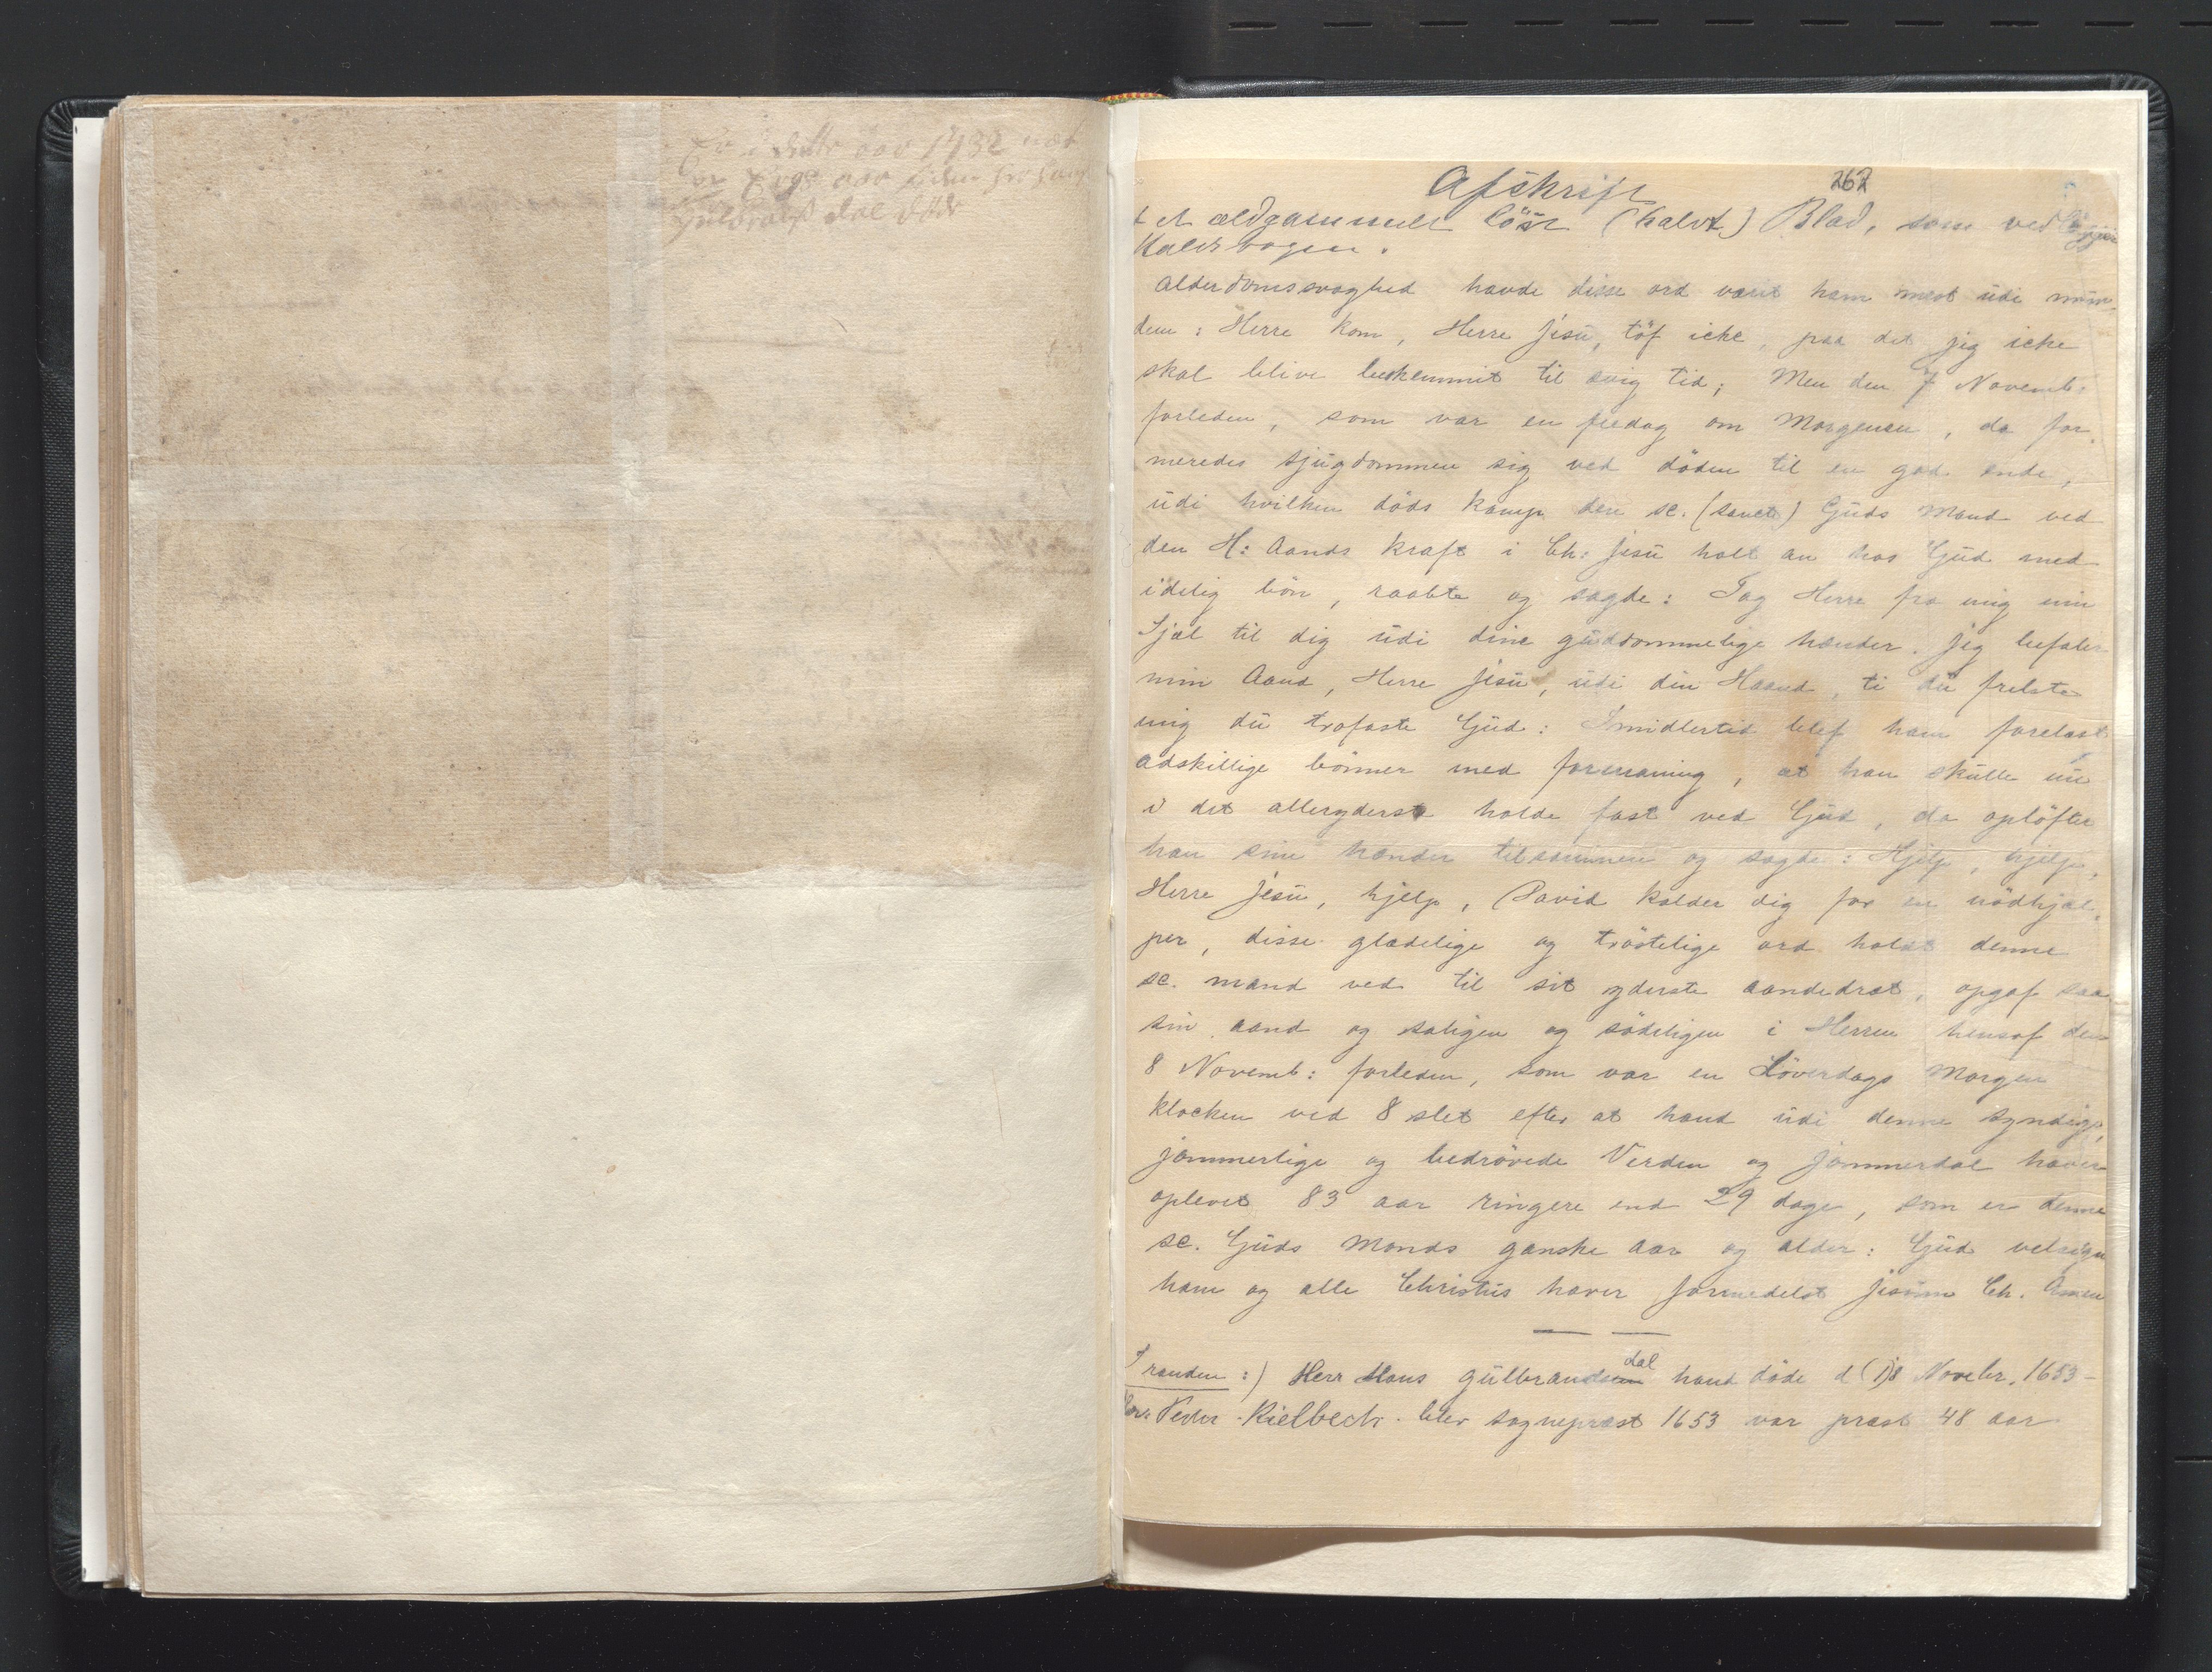 dette aar 1732
dal døde
262
Afskrift
et ældgammelt löst (halvt) Blad, som vedligger
Kaldsbogen.
Alderdomssvaghed havde disse ord varit ham mest udi mun¬
den: Herre kom, Herre Jesu, töf icke, paa det jeg icke
skal blive beskemmit til evig tid; Men den 7 Novemb.
forleden, som var en fredag om Morgenen, da for¬
meredes sjugdommen sig ved döden til en god ende,
udi hvilken döds kamp den sc. (sanct) Guds Mand ved
den H: Aands kraft i Ch: Jesu holt an hos Gud med
idelig bön, raabte og sagde: Tag Herre fra mig min
Sjæl til dig udi dine guddommelige hænder. Jeg befaler
min Aand, Herre Jesu, udi din Haand, ti du frelste
mig du trofaste Gud: Imidlertid blef ham forelæst
adskillige bönner med formaning, at han skulle nu
i det alleryderste holde fast ved Gud, da oplöfter
han sine hænder tilsammen og sagde: Hjelp, hjelp,
Herre Jesu, hjelp, David kalder dig for en nödhjæl¬
per, disse glædelige og tröstelige ord holdt denne
sc. mand ved til sit yderste aandedræt, opgaf saa
sin aand og saligen og södeligen i Herren hensof den
8 Novemb: forleden, som var en Löverdags Morgen
klocken ved 8 slet efter at hand udi denne syndige,
jammerlige og bedrövede Verden og jammerdal haver
oplevet 83 aar ringere end 29 dage, som er denne
sc. Guds Mands ganske Aar og alder: Gud velsigne
ham og alle Christus haver formedelst Jesum Ch. Amen
I randen:) Herr Hans gulbrandsdal hand döde d (1)8 Novebr. 1653 –
Herr Peder Kielbech blev sognepræst 1653 var præst 48 aar